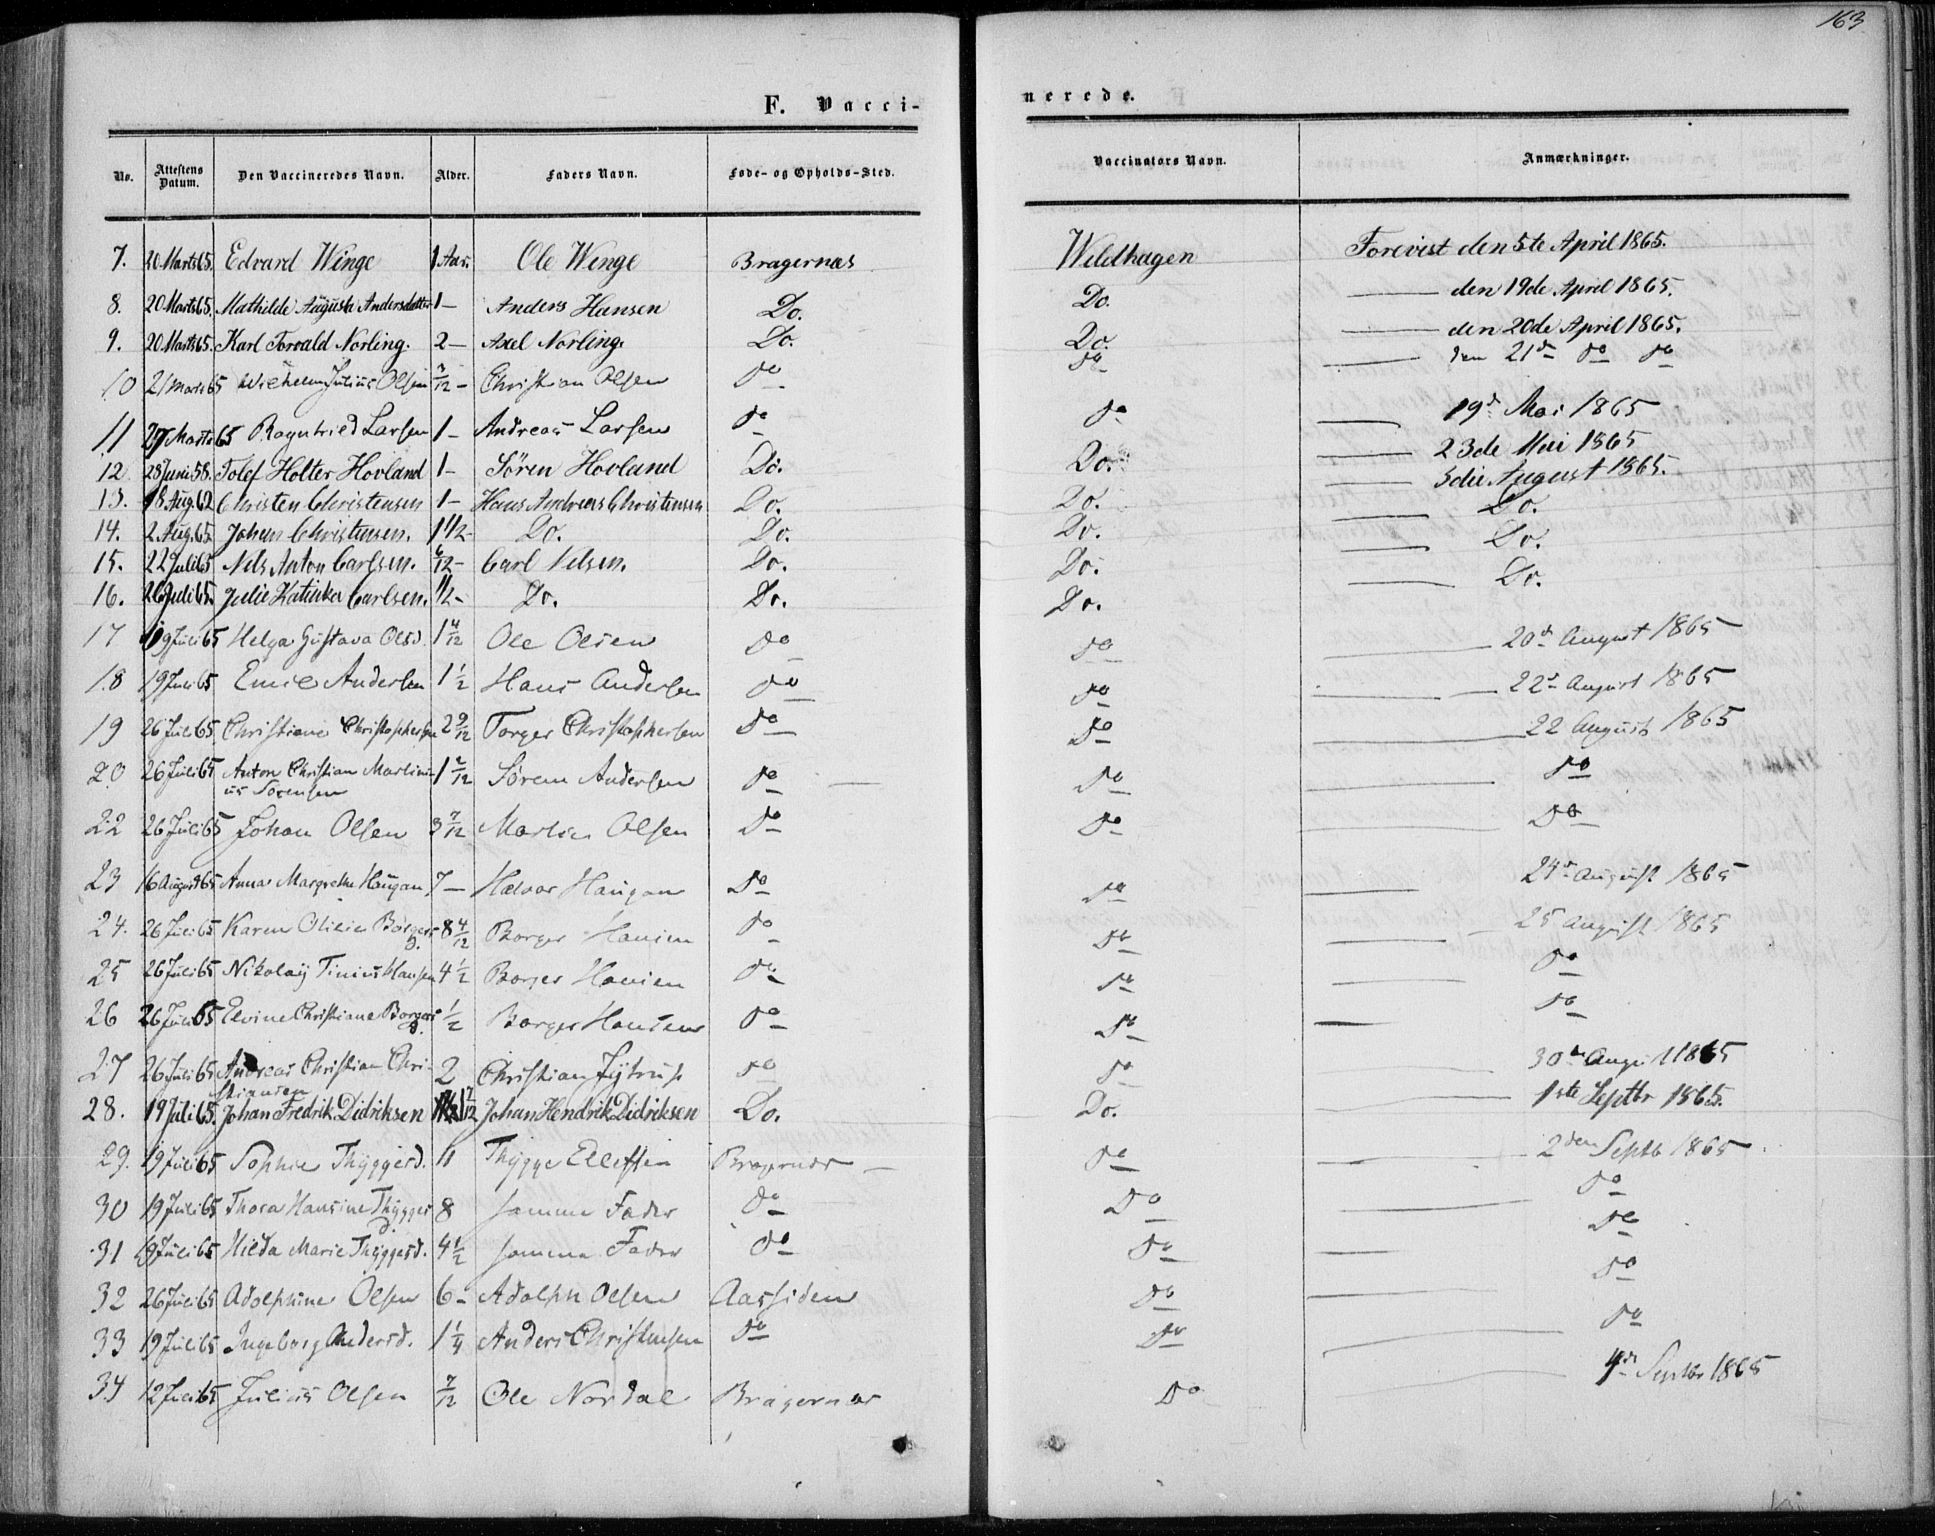 163
F. Vacci-
nerede.
No. Attestens Datum. Den Vaccineredes Navn. Alder. Faders Navn. Føde- og Opholds-Sted. Vaccinators Navn. Anmærkninger.
7. 20 Marts 65. Edvard Winge 1 Aar. Ole Winge Bragernæs Wildhagen Forevist den 5te April 1865.
8. 20 Marts 65. Mathilde Augusta Andersdatter 1 — Anders Hansen Do. Do. — den 19de April 1865.
9. 20 Marts 65. Karl Torvald Norling. 2 — Axel Norling. Do. Do. — den 20de April 1865.
10 21 Marts 65 Wilhelm Julius Olsen 7/12 — Christian Olsen Do Do — den 21de Do Do
11 27 Marts 65 Ragnhild Larsen 1 — Andreas Larsen Do Do — 19de Mai 1865
12 28 Juni 58. Tolef Holter Hovland 1 — Søren Hovland Do. Do. — 23de Mai 1865
13. 18 Aug. 62 Christen Christensen 1 — Hans Andreas Christensen Do. Do. — 3die August 1865.
14. 2. Aug. 65 Johan Christensen. 1 1/2 — Do. Do. Do. — Do.
15. 22 Juli 65 Nels Anton Carlsen. 6/12 — Carl Nelsen. Do. Do. — Do.
16. 26 Juli 65. Julie Katinka Carlsen. 1/2 — Do. Do. Do. — Do.
17 19 Juli 65 Helga Gustava Olsd. 1 4/12 Ole Olsen Do Do — 20de August 1865
18 19 Juli 65 Emil Andersen 1 1/2 Hans Andersen Do Do — 22de August 1865
19 26 Juli 65 Christiane Christophersen 2 9/12 Torger Christophersen Do Do — 22 August 1865
20 26 Juli 65 Anton Christian Martini- 1 2/12 Søren Andersen Do — Do — Do
us Sørensen
22 26 Juli 65 Johan Olsen 3 7/12 Martin Olsen Do Do Do
23 16 August 65 Anna Margrethe Haugan 7 — Halvor Haugan Do Do — 24de August 1865
24. 26 Juli 65 Karen Olivia Borgers 8 4/12 Borger Hansen Do Do — 25 August 1865
D.
25 26 Juli 65 Nikolay Tinius Hansen 4 1/2 Borger Hansen Do Do — Do
26 26 Juli 65 Elvine Christiane Borgers 1/2 Borger Hansen Do Do — Do
D.
27 26 Juli 65 Andreas Christian Chri- 2 Christian Do Do — 30de August 1865
stiansen
28. 19 Juli 65. Johan Fredrik Didriksen 1 7/12 Johan Hendrik Didriksen Do. Do. — 1ste Septbr 1865.
29. 19 Juli 65 Sophie Thyggesd. 11 Thygge Ellefsen Bragernæs — Do — 2den Septb 1865
30 19 Juli 65 Thora Hansine Thygges 8 samme Fader Do Do — Do
d.
31 19 Juli 65 Hilda Marie Thyggesd. 4 1/2 samme Fader Do Do — Do
32 26 Juli 65 Adolphine Olsen 6 — Adolph Olsen Aassiden Do — Do
33 19 Juli 65 Ingeborg Andersd. 1 1/4 Anders Christensen Do Do — Do
34 12 Juli 65 Julius Olsen 7/12 Ole Nordal Bragernæs Do — 4de Septbr 1865